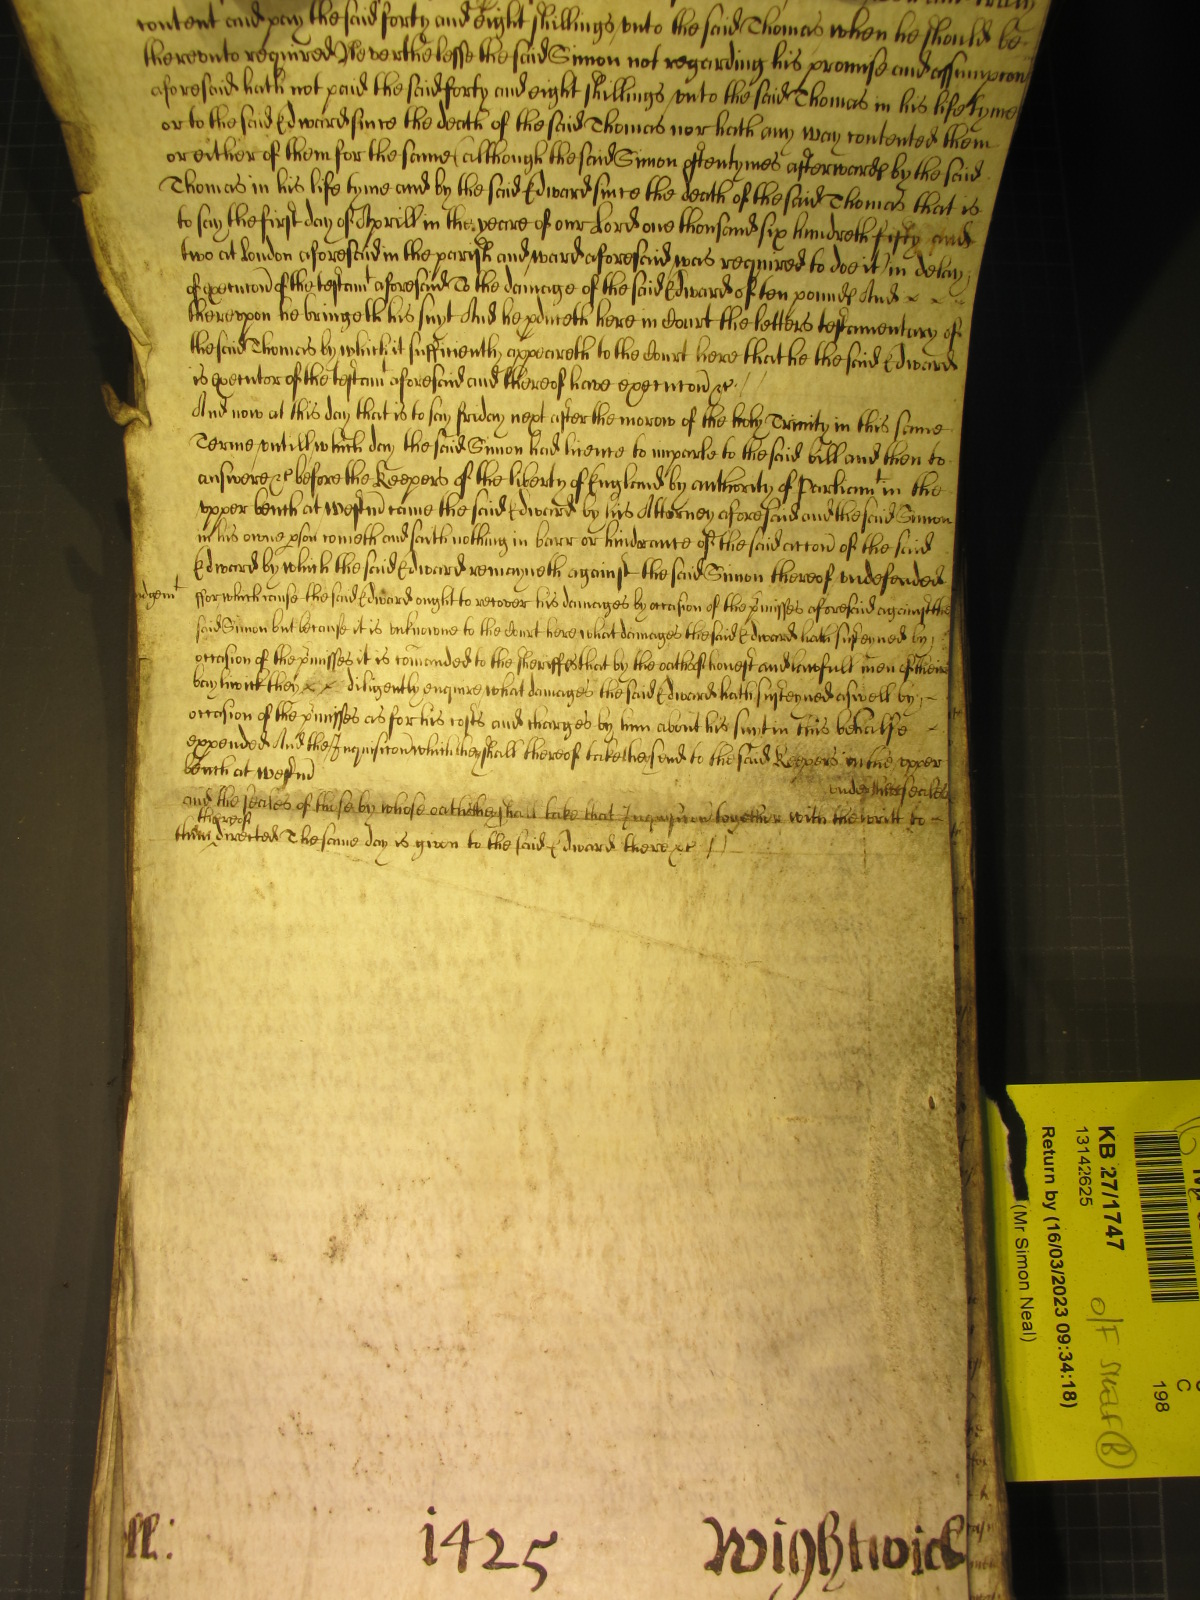 content and pay the said forty and eight shillings unto the said Thomas when he should be
thereunto required Neverthelesse the said Simon not regarding his promise and assumpcon
aforesaid hath not paid the said forty and eight shillings unto the said Thomas in his life tyme
or to the said Edward since the death of the said Thomas nor hath any way contented them
or either of them for the same (although the said Simon oftentymes afterwards by the said
Thomas in his life tyme and by the said Edward since the death of the said Thomas that is
to say the first day of Aprill in the yeare of our Lord one thousand six hundreth fifty and
two at London aforesaid in the parish and ward aforesaid was required to doe it) in delay
of execucon of the testamt aforesaid To the damage of the said Edward of ten pounds And x x
thereupon he bringeth his suyt And he pduceth here in Court the letters testamentary of
the said Thomas by which it sufficiently appeareth to the Court here that he the said Edward
is executor of the testamt aforesaid and thereof have execucon &c //
And now at this day that is to say friday next after the morow of the holy Trinity in this same
Terme untill which day the said Simon had licence to imparle to the said bill and then to
answere &c before the Keepers of the liberty of England by authority of Parliamt in the
upper bench at Westm came the said Edward by his Attorney aforesaid and the said Simon
in his owne pson cometh and saith nothing in barr or hinderance of the said accon of the said
Edward by which the said Edward remayneth against the said Simon thereof undefended
udgemt ffor which cause the said Edward ought to recover his damages by occasion of the pmisses aforesaid against the
said Simon but because it is unknowne to the Court here what damages the said Edward hath susteyned by
occasion of the pmisses it is comanded to the sheriffes that by the oathes of honest and lawfull men of their
baylywick they x x diligently enquire what damages the said Edward hath susteyned aswell by
occasion of the pmisses as for his costs and charges by him about his suyt in this behalfe
expended And the Inquisicon which they shall thereof take they send to the said Keepers in the upper
bench at Westm under their seales
and the seales of those by whose oath they shall take that Inquisicon together with the writt to
thereof
them directed The same day is given to the said Edward there &c //
ll:
1425
Wightwick
KB 27/1747
13142625
Return by (16/03/2023 09:34:18)
(Mr Simon Neal)
O/F
C
198